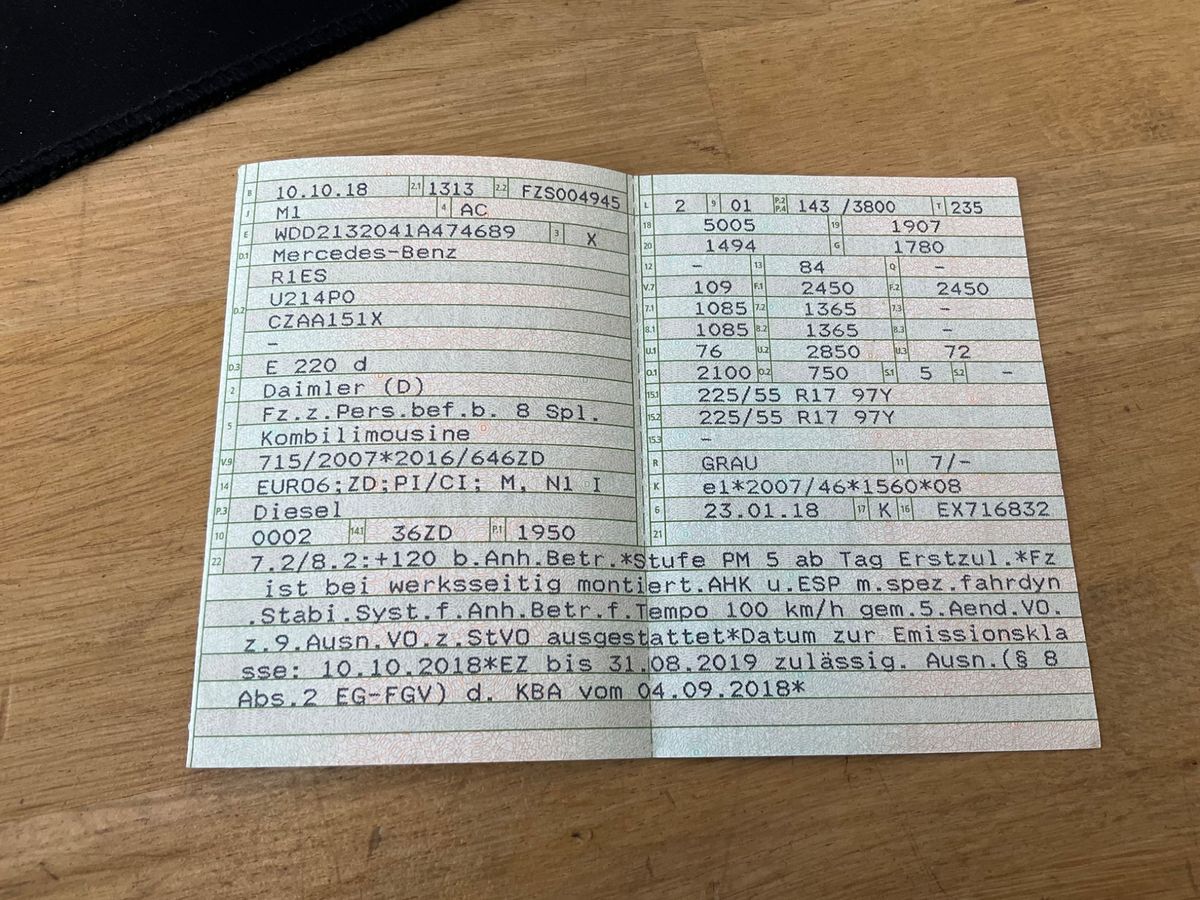 B 10.10.18 2.1 1313 2.2 FZS004945
J M1 4 AC
E WDD2132041A474689 3 X
D.1 Mercedes-Benz
R1ES
D.2 U214P0
CZAA151X
–
D.3 E 220 d
2 Daimler (D)
5 Fz.z.Pers.bef.b. 8 Spl.
Kombilimousine
V.9 715/2007*2016/646ZD
14 EURO6;ZD;PI/CI; M, N1 I
P.3 Diesel
10 0002 14.1 36ZD P.1 1950
L 2 9 01 P.2 P.4 143 /3800 T 235
18 5005 19 1907
20 1494 G 1780
12 – 13 84 Q –
V.7 109 F.1 2450 F.2 2450
7.1 1085 7.2 1365 7.3 –
8.1 1085 8.2 1365 8.3 –
U.1 76 U.2 2850 U.3 72
O.1 2100 O.2 750 S.1 5 S.2 –
15.1 225/55 R17 97Y
15.2 225/55 R17 97Y
15.3 –
R GRAU 11 7/–
K e1*2007/46*1560*08
6 23.01.18 17 K 16 EX716832
21
22 7.2/8.2:+120 b.Anh.Betr.*Stufe PM 5 ab Tag Erstzul.*Fz
ist bei werksseitig montiert.AHK u.ESP m.spez.fahrdyn
.Stabi.Syst.f.Anh.Betr.f.Tempo 100 km/h gem.5.Aend.VO.
z.9.Ausn.VO.z.StVO ausgestattet*Datum zur Emissionskla
sse: 10.10.2018*EZ bis 31.08.2019 zulässig. Ausn.(§ 8
Abs.2 EG-FGV) d. KBA vom 04.09.2018*